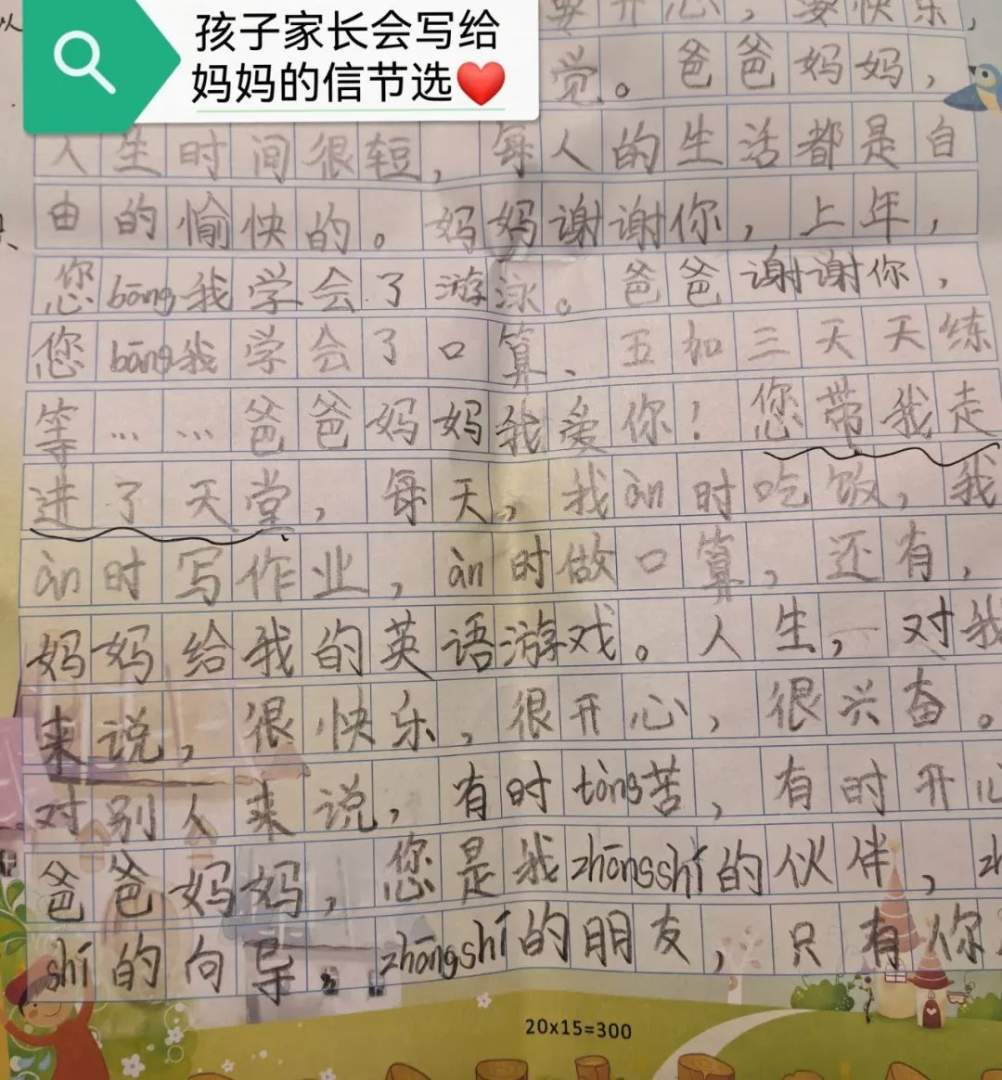 孩子家长会写给
妈妈的信节选
要开心，要快乐，
觉。爸爸妈妈，
人生时间很短，每人的生活都是自
由的愉快的。妈妈谢谢你，上年，
您bāng我学会了游泳。爸爸谢谢你，
您bāng我学会了口算、五加三天天练
等……爸爸妈妈我爱你！您带我走
进了天堂，每天，我àn时吃饭，我
àn时写作业，àn时做口算，还有，
妈妈给我的英语游戏。人生，对我
来说，很快乐，很开心，很兴奋。
对别人来说，有时tòng苦，有时开心
爸爸妈妈，您是我zhōngshí的伙伴，zh
shí的向导，zhōngshí的朋友，只有你
20x15=300